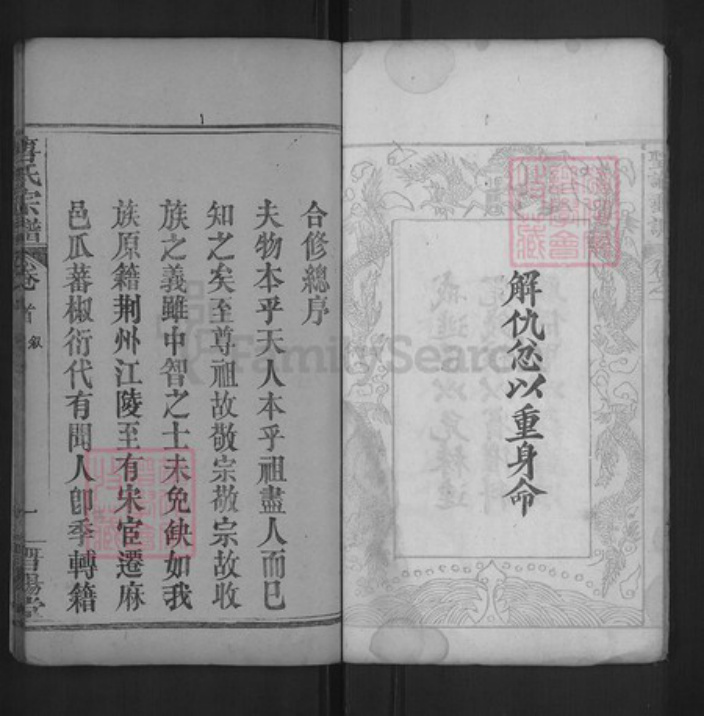 解仇忿以重身命
合修總序
夫物本乎天人本乎祖盡人而巳
知之矣至尊祖故敬宗敬宗故收
族之義雖中智之士未免缺如我
族原籍荆州江陵至有宋宦遷麻
邑瓜蕃椒衍代有聞人卽季轉籍
唐氏宗譜
卷之首
叙
一
晋陽堂
FamilySearch